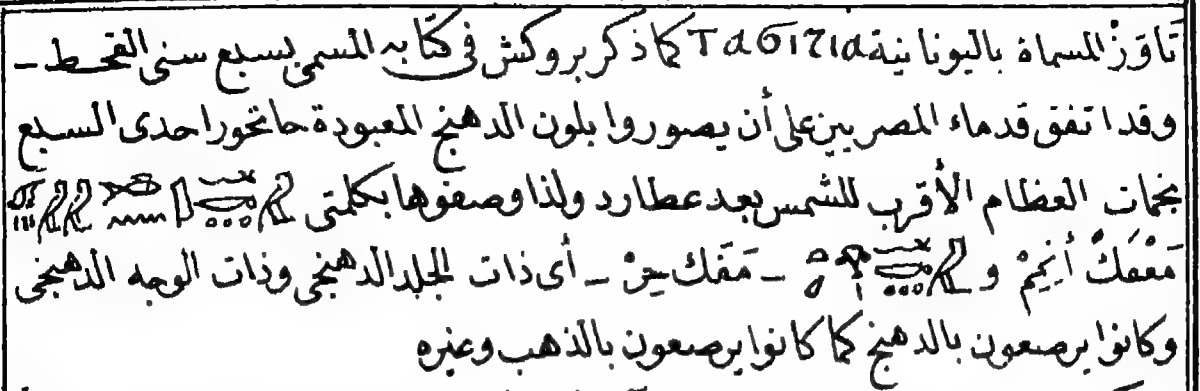 تَاوَزْ المسماة باليونانية Ταϐιzια كما ذكر بروكش فى كتابه المسمى بسبع سنى القحط ـ
وقد اتفق قدماء المصريين على أن يصوروا بلون الدهنج المعبودة حاتحور احدى السبع
نجمات العظام الأقرب للشمس بعد عطارد ولذا وصفوها بكلمتى
مَعْفَكْ أَنِمْ و ـ مَفَك حِرْ ـ أى ذات الجلد الدهنجى وذات الوجه الدهنجى
وكانوا يرصعون بالدهنج كما كانوا يرصعون بالذهب وغيره